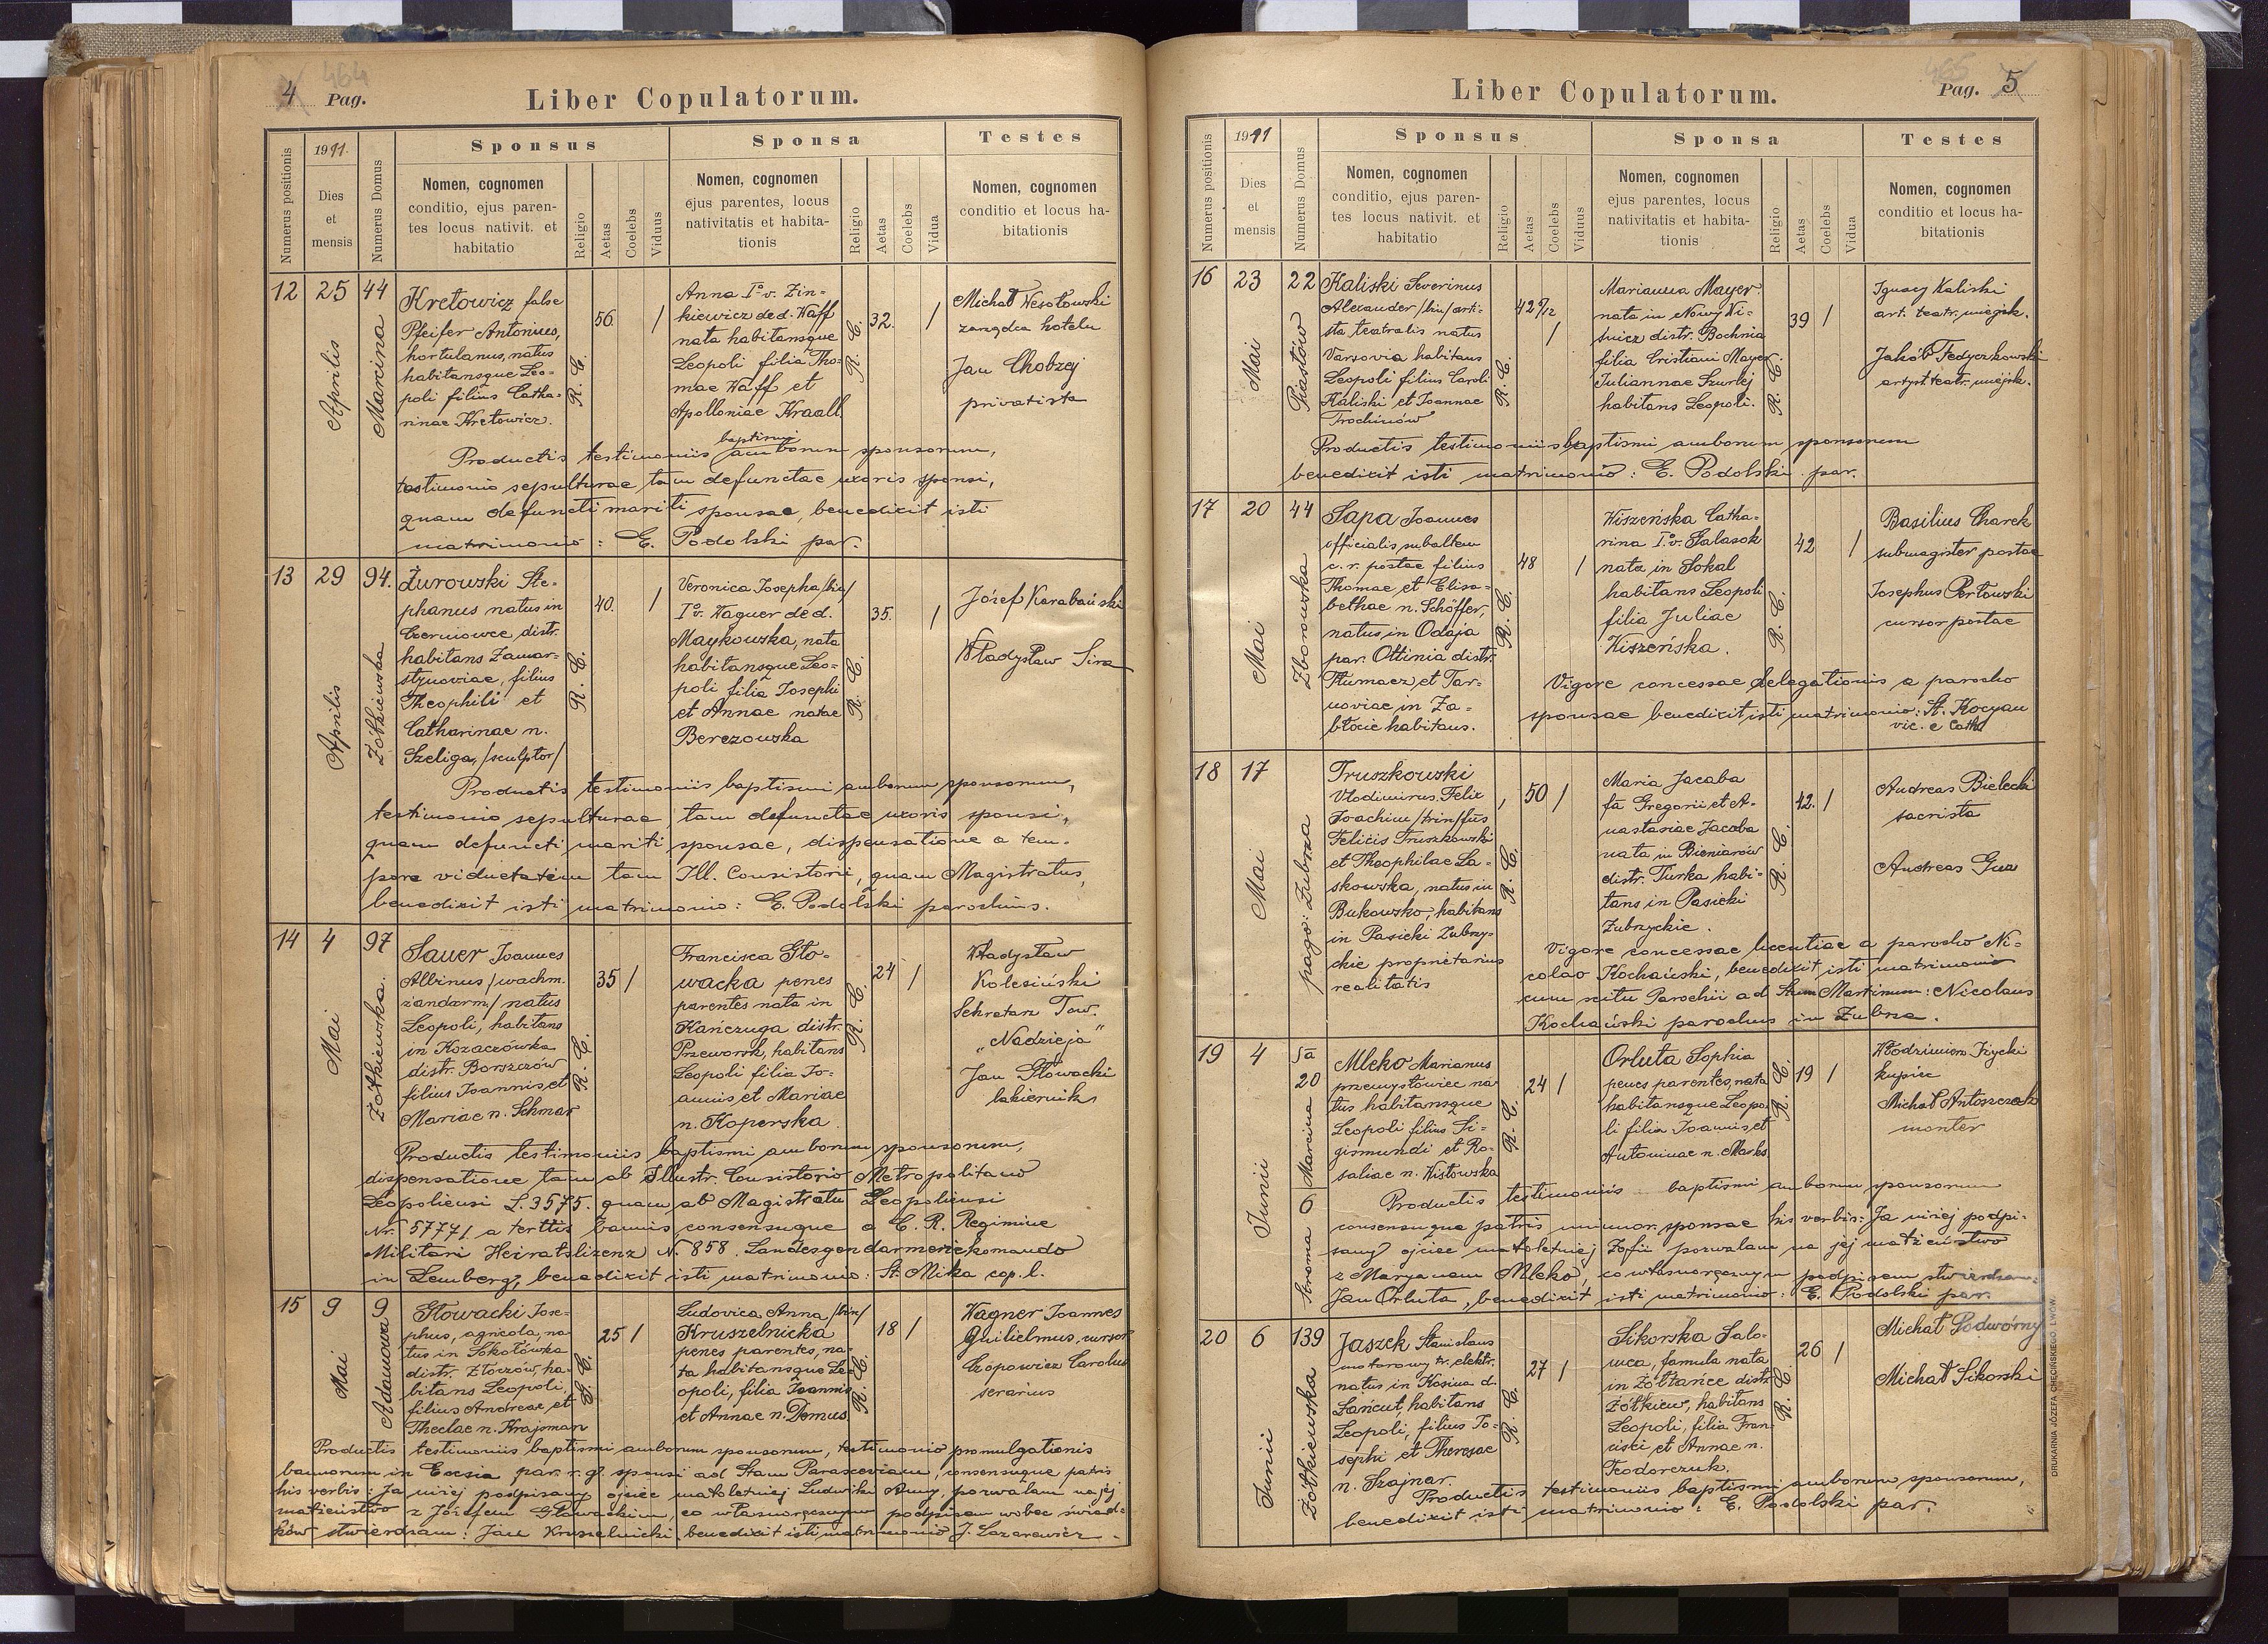 464
4 Pag.
Liber Copulatorum.
Numerus positionis
1911.
Dies et mensis
Numerus Domus
Sponsus
Nomen, cognomen
conditio, ejus paren-
tes locus nativit. et
habitatio
Religio
Aetas
Coelebs
Viduus
Sponsa
Nomen, cognomen
ejus parentes, locus
nativitatis et habita-
tionis
Religio
Aetas
Coelebs
Vidua
Testes
Nomen, cognomen
conditio et locus ha-
bitationis
12
25
Aprilis
44
Marcina
Kretowicz false
Pfeifer Antonius,
hortulanus, natus
habitansque Leo-
poli filius Catha-
rinae Kretowicz.
R. C.
56.
/
Anna Iº v. Zin-
kiewicz de d. Waff
nata habitansque
Leopoli filia Tho-
mae Waff et
Apolloniae Kraall
R. C.
32.
/
Michał Wesołowski
zarządca hotelu
Jan Chobzej
privatista
baptismi
Productis testimoniis amborum sponsorum,
testimonio sepulturae tam defunctae uxoris sponsi,
quam defuncti mariti sponsae, benedixit isti
matrimonio: E. Podolski par.
13
29
Aprilis
94.
Żółkiewska
Żurowski Ste-
phanus natus in
Czerniowce distr.
habitans Zamar-
stynoviae, filius
Theophili et
Catharinae n.
Szeliga, /sculptor/
R. C.
40.
/
Veronica Josepha /bin/
Iº v. Wagner de d.
Maykowska, nata
habitansque Leo-
poli filia Josephi
et Annae natae
Berezowska
R. C.
35.
/
Józef Karabański
Władysław Sira
Productis testimoniis baptismi amborum sponsorum,
testimonio sepulturae, tam defunctae uxoris sponsi,
quam defuncti mariti sponsae, dispensatione a tem-
pore viductatim tam Ill. Consistorii, quam Magistratus,
benedixit isti matrimonio: E. Podolski parochus.
14
4
Mai
97
Żółkiewska.
Sauer Joannes
Albinus /wachm.
żandarm./ natus
Leopoli, habitans
in Kozaczówka
distr. Borszczów
filius Joannis et
Mariae n. Schmar
R. C.
35
/
Francisca Gło-
wacka penes
parentes nata in
Kańczuga distr.
Przeworsk, habitans
Leopoli filia Jo-
annis et Mariae
n. Koperska
R. C.
24
/
Władysław
Kolesiński
Sekretarz Tow.
„Nadzieja"
Jan Głowacki
lakiernik
Productis testimoniis baptismi amborum sponsorum,
dispensatione tam ab Illustr. Consistorio Metropolitano
Leopoliensi L. 3575. quam ab Magistratu Leopoliensi
Nr. 57771 a tertiis bannis consensuque a C. R. Regimine
Militari Heiratslizenz N. 858. Landesgendarmeriekomando
in Lemberg, benedixit isti matrimonio: St. Mika cop. l.
15
9
Mai
9
Adamowa
Głowacki Jose-
phus, agricola, na-
tus in Sokołówka
distr. Złoczów, ha-
bitans Leopoli,
filius Andreae et
Theclae n. Krajsman
G. C.
25
/
Ludovica Anna /bin/
Kruszelnicka
penes parentes, na-
ta habitansque Le-
opoli, filia Joannis
et Annae n. Domus
R. C.
18
/
Wagner Joannes
Guilielmus, cursor
Czopowicz Carolus
serarius
Productis testimoniis baptismi amborum sponsorum, testimonio promulgationis
bannorum in Eccsia par. r. g. sponsi ad Stam Parasceviam, consensuque patris
his verbis: Ja niżej podpisany ojciec małoletniej Ludwiki Anny, pozwalam na jej
małżeństwo z Józefem Głowackim, co własnoręcznym podpisem wobec świad-
ków stwierdzam: Jan Kruszelnicki, benedixit isti matrimonio J. Lazarewicz.
465
Pag. 5
Liber Copulatorum.
Numerus positionis
1911
Dies et mensis
Numerus Domus
Sponsus
Nomen, cognomen
conditio, ejus paren-
tes locus nativit. et
habitatio
Religio
Aetas
Coelebs
Viduus
Sponsa
Nomen, cognomen
ejus parentes, locus
nativitatis et habita-
tionis
Religio
Aetas
Coelebs
Vidua
Testes
Nomen, cognomen
conditio et locus ha-
bitationis
16
23
Mai
22
Piastów
Kaliski Severinus
Alexander /bin/ arti-
sta teatralis natus
Varsovia habitans
Leopoli filius Caroli
Kaliski et Joannae
Trochimów
R. C.
42 9/12
/
Marianna Mayer
nata in Nowy Wi-
śnicz distr. Bochnia
filia Cristiani Mayer
Juliannae Szurlej
habitans Leopoli.
R. C.
39
/
Ignacy Kaliski
art. teatr. miejsk.
Jakób Fedyczkowski
artyst. teatr. miejsk.
Productis testimoniis baptismi amborum sponsorum
benedixit isti matrimonio: E. Podolski par.
17
20
Mai
44
Zborowska
Sapa Joannes
officialis subaltern
c. r. postae filius
Thomae et Elisa-
bethae n. Schöffer,
natus in Odaja
par. Ottinia distr.
Tłumacz, et Tar-
noviae in Za-
błocie habitans.
R. C.
48
/
Wiszeńska Catha-
rina I. v. Galasok
nata in Sokal
habitans Leopoli
filia Juliae
Wiszeńska.
R. C.
42
/
Basilius Charek
submagister postae
Josephus Pertowski
cursor postae
Vigore concessae delegationis a parocho
sponsae benedixit isti matrimonio: St. Kocyan
vic. e Cathd
18
17
Mai
pago: Zubrza
Truszkowski
Vlodimirus Felix
Joachim /trin/ flius
Felicis Truszkowski
et Theophilae La-
skowska, natus in
Bukowsko, habitans
in Pasieki Zubrzy-
ckie proprietarius
realitatis
R. C.
50
/
Maria Jacaba
fa Gregorii et A-
nastasiae Jacaba
nata in Bieniarów
distr. Turka habi-
tans in Pasieki
Zubrzyckie.
R. C.
42.
/
Andreas Bielecki
sacrista
Andreas Gua
Vigore concessae licentiae a parocho Ni-
colao Kochański, benedixit isti matrimonio
cum scitu Parochii ad Stum Martinum: Nicolaus
Kochański parochus in Zubrza.
19
4
Junii
5a
20
Marcina
6
Stroma
Mleko Marianus
przemysłowiec na-
tus habitansque
Leopoli filius Si-
gismundi et Ro-
saliae n. Wistowska
R. C.
24
/
Orłuta Sophia
penes parentes, nata
habitansque Leopo-
li filia Joannis et
Antoninae n. Marks
R. C.
19
/
Włodzimierz Iżycki
kupiec
Michał Antoszczak
monter
Productis testimoniis baptismi amborum sponsorum
consensuque patris minnor. sponsae his verbis: Ja niżej podpi-
sany ojciec małoletniej Zofii pozwalam na jej małżeństwo
z Maryanem Mleko, co własnoręcznym podpisem stwierdzam:
Jan Orłuta, benedixit isti matrimonio: E. Podolski par.
20
6
Junii
139
Żółkiewska
Jaszek Stanislaus
motorowy tr. elektr.
natus in Kosina d.
Łańcut, habitans
Leopoli, filius Jo-
sephi et Theresae
n. Szajnar.
R. C.
27
/
Sikorska Salo-
mea, famula nata
in Żółtańce distr.
Żółkiew, habitans
Leopoli, filia Fran-
ciski et Annae n.
Teodorczuk.
R. C.
26
/
Michał Podwórny
Michał Sikorski
Productis testimoniis baptismi amborum sponsorum,
benedixit isti matrimonio: E. Podolski par.
DRUKARNIA JÓZEFA CHĘCIŃSKIEGO, LWÓW.